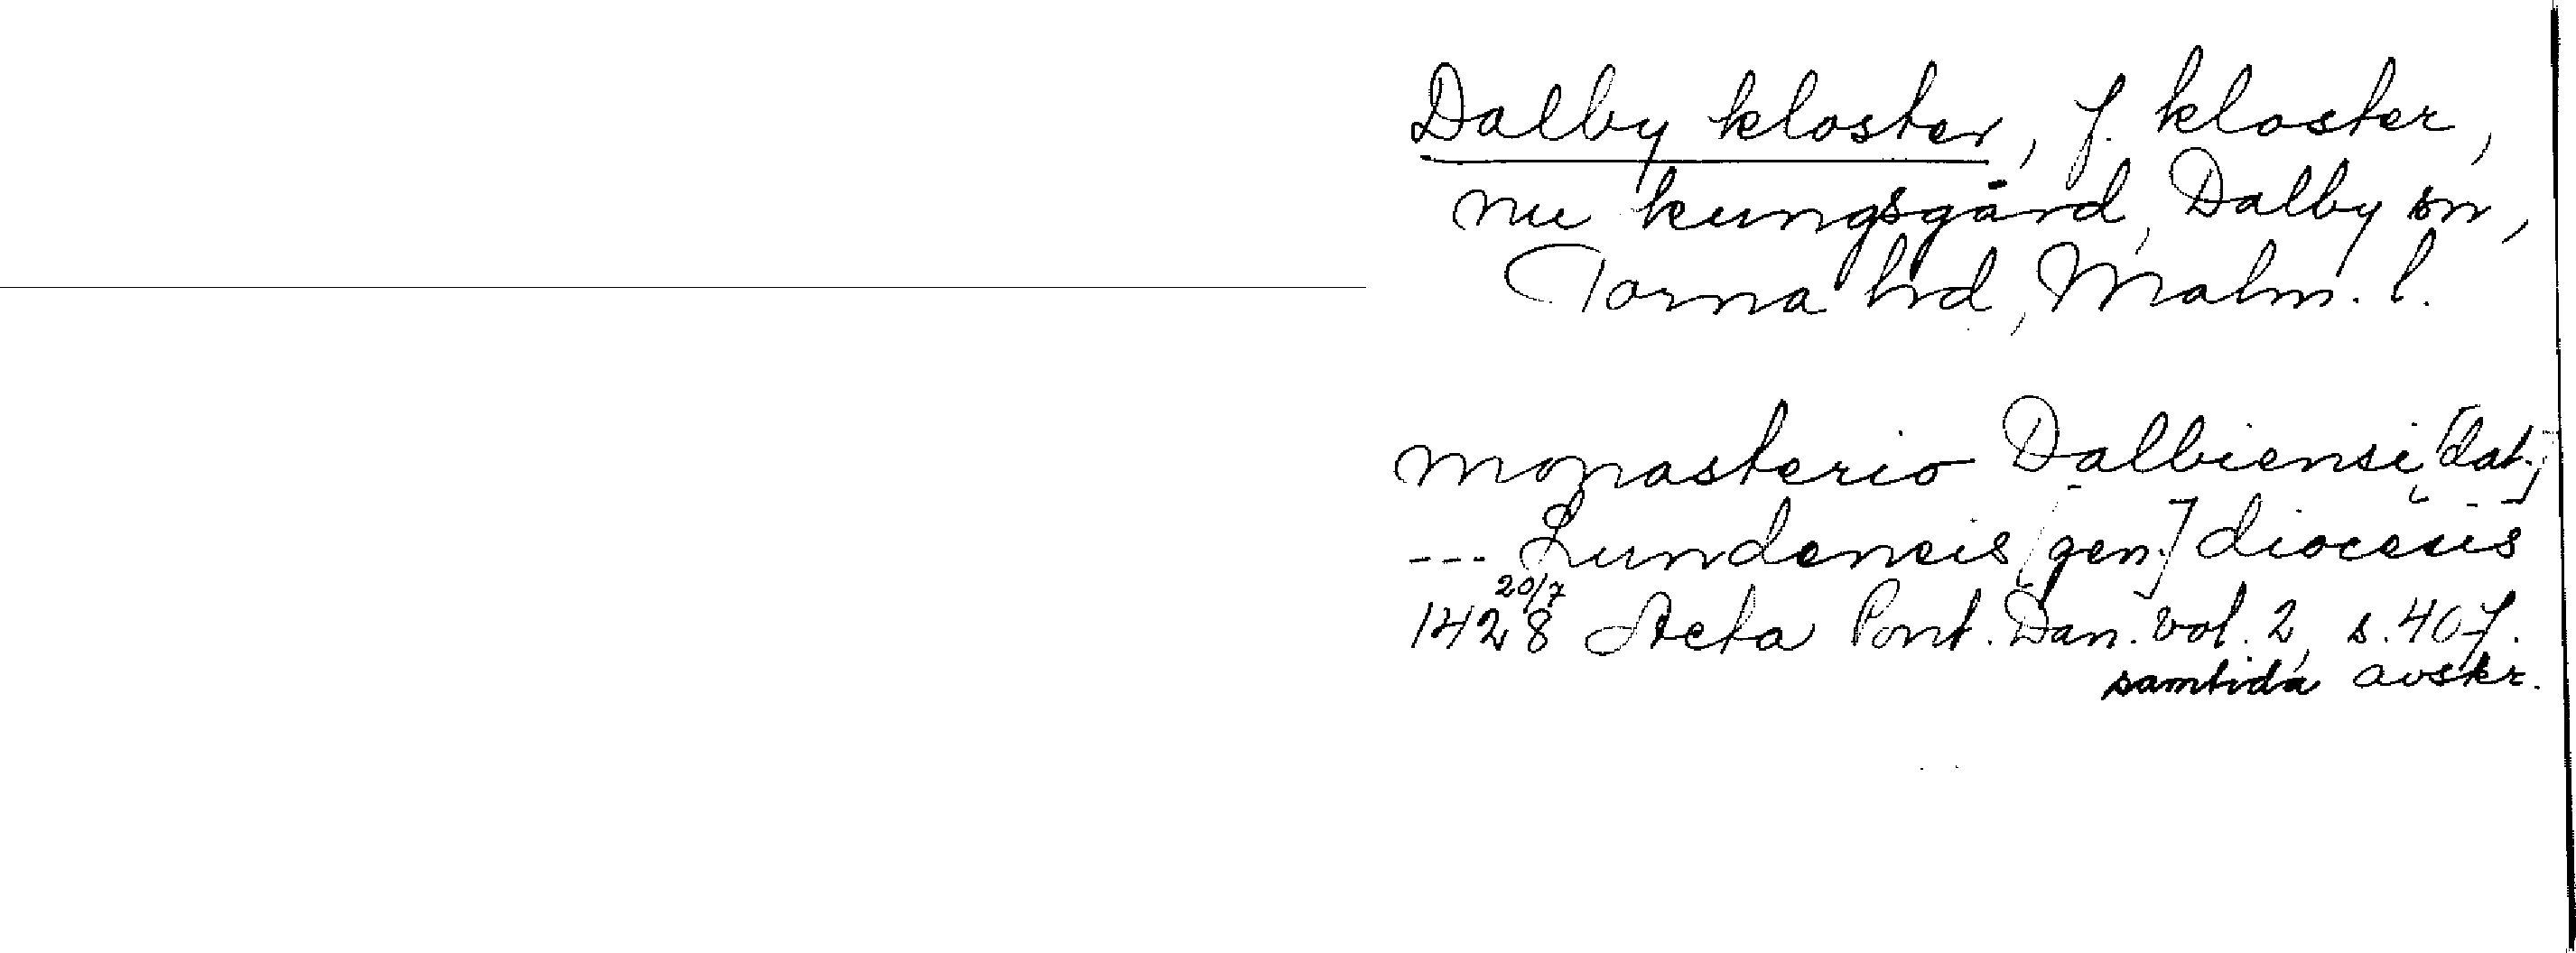 Dalby kloster, f. kloster,
nu kungsgård, Dalby sn,
Torna hd, Malm. l.
monasterio Dalbiensi [dat.]
--- Lundensis [gen.] diocesis
1428 20/7 Acta Pont. Dan. vol. 2, s. 40 f.
samtida avskr.